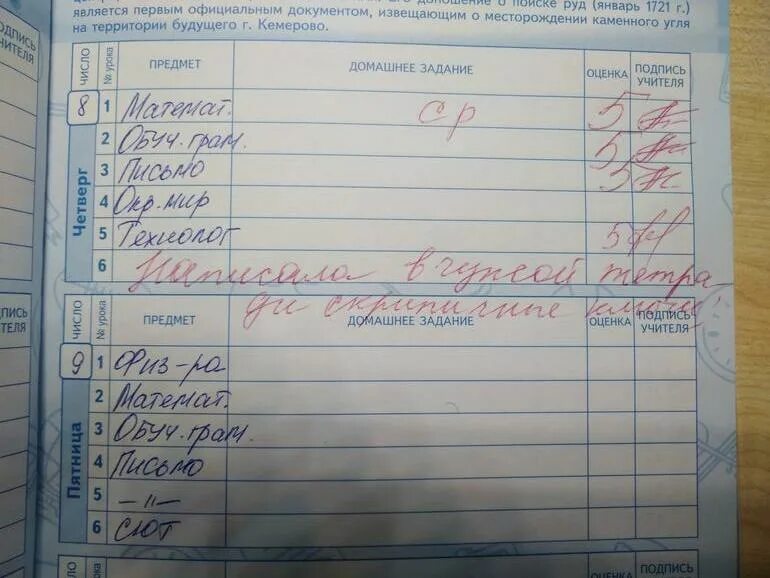 является первым официальным документом, извещающим о месторождении каменного угля
на территории будущего г. Кемерово.
ПОДПИСЬ
УЧИТЕЛЯ
ЧИСЛО № урока ПРЕДМЕТ ДОМАШНЕЕ ЗАДАНИЕ ОЦЕНКА ПОДПИСЬ УЧИТЕЛЯ
8 1 Математ. ср 5
2 Обуч. грам. 5
3 Письмо 5
Четверг
4 Окр. мир
5 Технолог 5
6 Написала в чужой тетра
ди скрипичные ключи!
ПОДПИСЬ
УЧИТЕЛЯ
ЧИСЛО № урока ПРЕДМЕТ ДОМАШНЕЕ ЗАДАНИЕ ОЦЕНКА ПОДПИСЬ УЧИТЕЛЯ
9 1 Физ-ра
2 Математ.
3 Обуч. грам.
Пятница
4 Письмо
5 –"–
6 СЮТ
ЧИСЛО ПОДПИСЬ